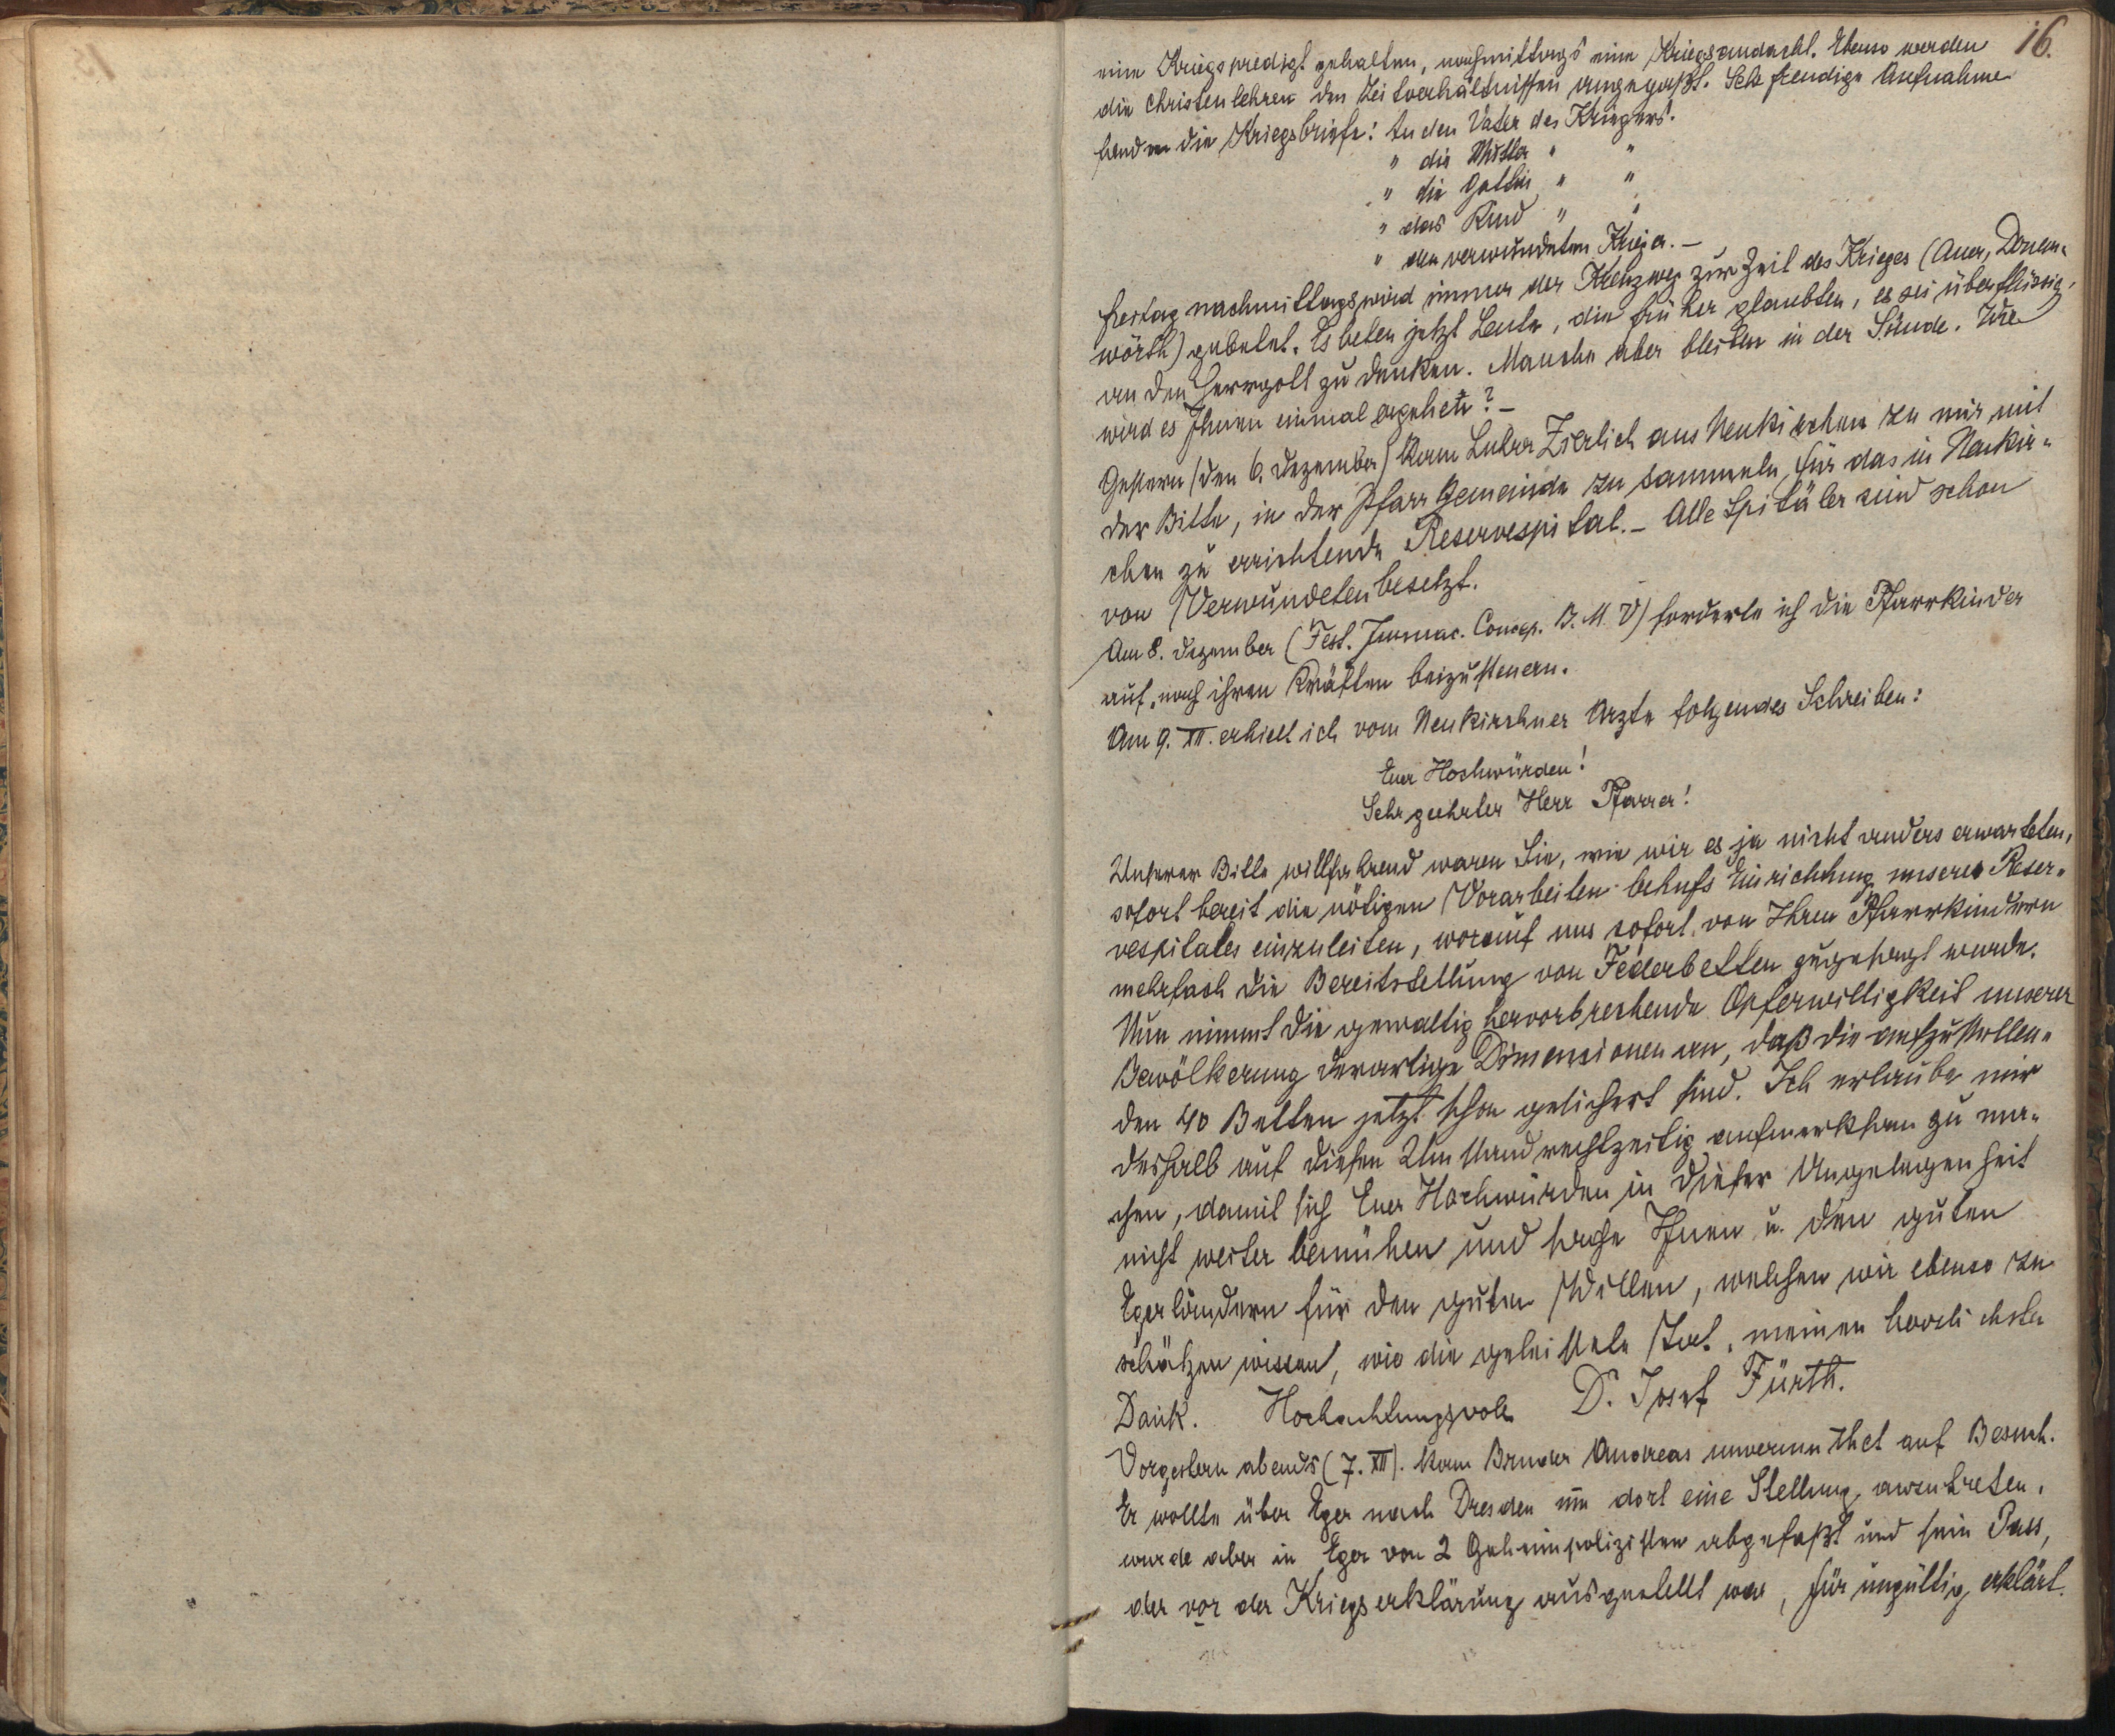 16.
eine Kriegspredigt gehalten, nachmittags eine Kriegsandacht. Ebenso werden
die Christenlehren den Zeitverhältnissen angepaßt. Sehr freudige Aufnahme
fanden die Kriegsbriefe: An den Vater des Kriegers.
" die Mutter " "
" die Gattin " "
" das Kind " "
" den verwundeten Krieger. –
Freitag nachmittags wird immer der Kreuzweg zur Zeit des Krieges (Auer, Donau-
wörth) gebetet. Es beten jetzt Leute, die früher glaubten, es sei überflüssig,
an den Herrgott zu denken. Manche aber bleiben in der Sünde. Wie
wird es Ihnen einmal ergehen? –
Gestern (den 6. Dezember) kam Lehrer Zierlich aus Neukirchen zu mir mit
der Bitte, in der Pfarrgemeinde zu sammeln für das in Neukir-
chen zu errichtende Reservespital. – Alle Spitäler sind schon
von Verwundeten besetzt.
Am 8. Dezember (Fest. Immac. Concep. B. M. V) forderte ich die Pfarrkinder
auf, nach ihren Kräften beizusteuern.
Am 9. XII. erhielt ich vom Neukirchner Arzte folgendes Schreiben:
Euer Hochwürden!
Sehr geehrter Herr Pfarrer!
Unserer Bitte willfahrend waren Sie, wie wir es ja nicht anders erwarteten,
sofort bereit die nötigen Vorarbeiten behufs Einrichtung unseres Reser-
vespitales einzuleiten, worauf uns sofort von Ihren Pfarrkindern
mehrfach die Bereitstellung von Federbetten zugesagt wurde.
Nun nimmt die gewaltig hervorbrechende Opferwilligkeit unserer
Bevölkerung derartige Dimensionen an, daß die aufzustellen-
den 40 Betten jetzt schon gesichert sind. Ich erlaube mir
deshalb auf diesen Umstand rechtzeitig aufmerksam zu ma-
chen, damit sich Euer Hochwürden in dieser Angelegenheit
nicht weiter bemühen und sage Ihnen u. den guten
Egerländern für den guten Willen, welchen wir ebenso zu
schätzen wissen, wie die geleistete Tat, meinen herzlichsten
Dank. Hochachtungsvoll D. Josef Fürth.
Vorgestern abends (7. XII). kam Bruder Andreas unvermuthet auf Besuch.
Er wollte über Eger nach Dresden um dort eine Stellung anzutreten,
wurde aber in Eger von 2 Geheimpolizisten abgefaßt und sein Pass,
der vor der Kriegserklärung ausgestellt war, für ungültig erklärt.